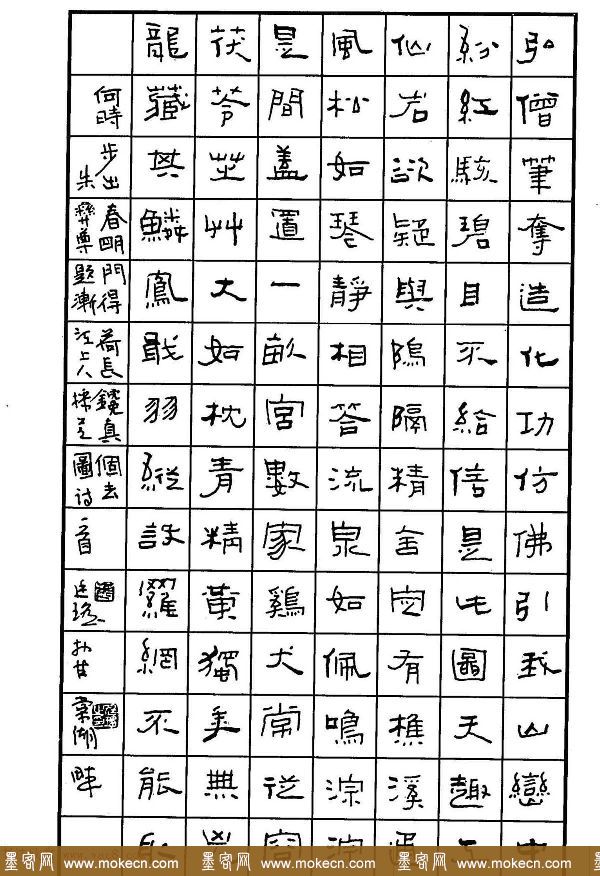 弘僧筆奪造化功仿佛引我山巒
紛紅駭碧目不給信是此圖天趣
仙岩欲疑與隝隔精舍定有樵溪通
風松如琴靜相答流泉如佩鳴淙淙
是間蓋置一畝宮數家鷄犬常從容
茯苓茁艸大如枕青精黃獨美無
龍藏其鱗鳳戢羽縱設羅網不能
何時步出春明門得荷長鑱真個去
朱彝尊題漸江上人採芝圖詩一首
墨客网 www.mokecn.com 墨客网 www.mokecn.com 墨客网 www.mokecn.com